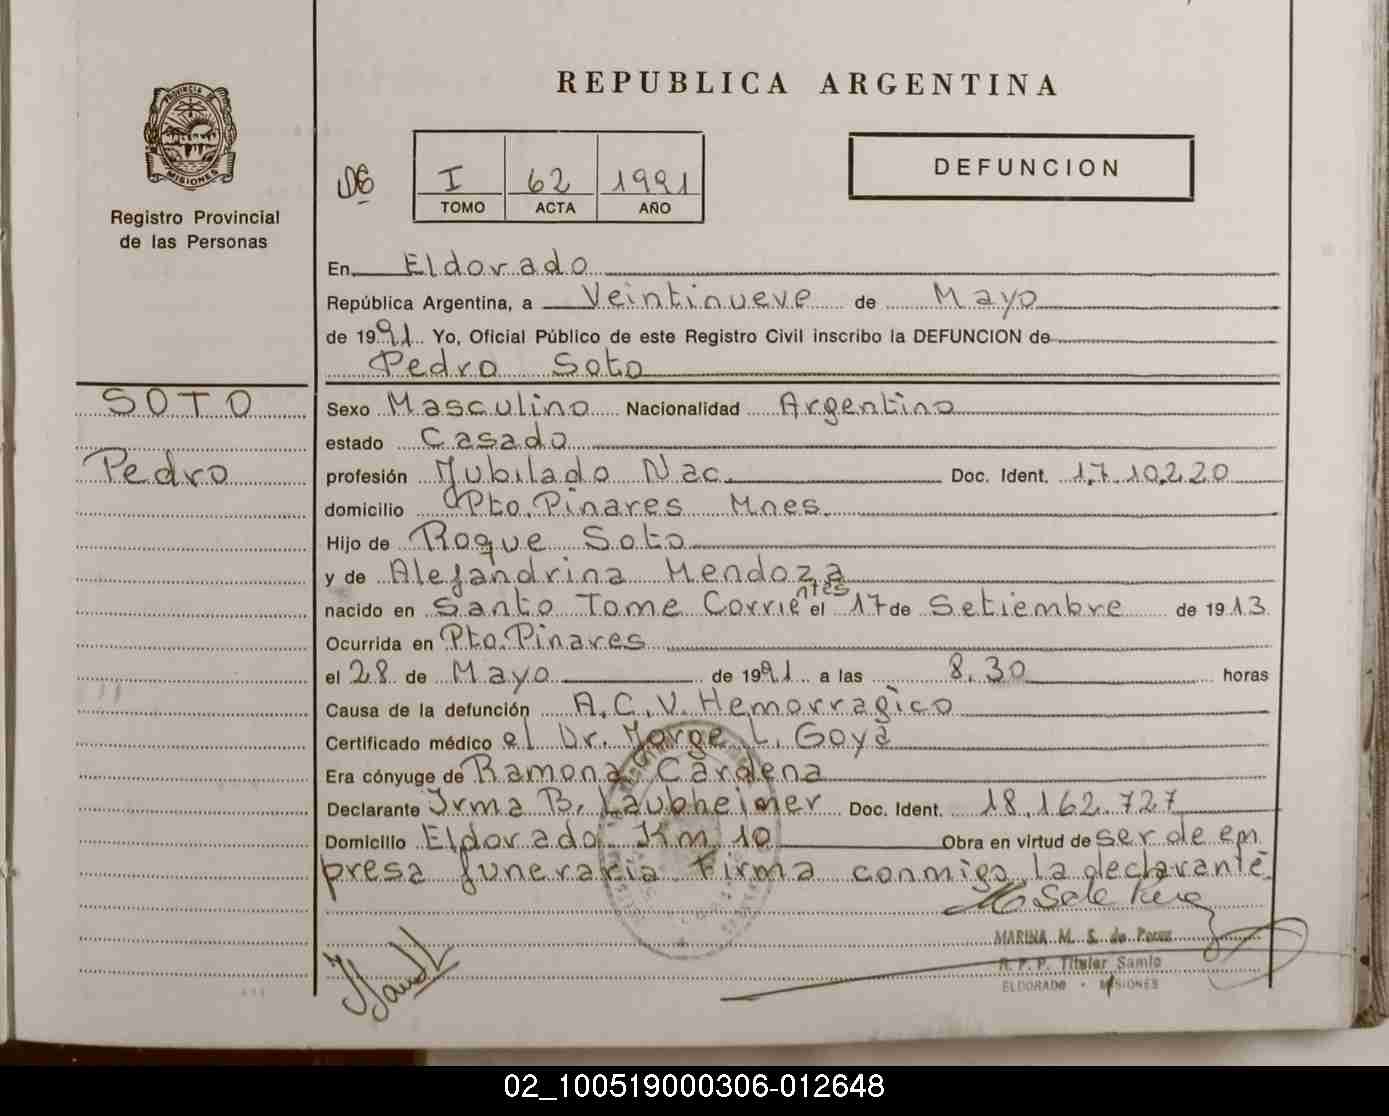 REPUBLICA ARGENTINA
PROVINCIA DE
MISIONES
Registro Provincial
de las Personas
I 62 1991
TOMO ACTA AÑO
DEFUNCION
En Eldorado
República Argentina, a Veintinueve de Mayo
de 1991 Yo, Oficial Público de este Registro Civil inscribo la DEFUNCION de
Pedro Soto
SOTO
Pedro
Sexo Masculino Nacionalidad Argentino
estado Casado
profesión Jubilado Nac. Doc. Ident. 1.710.220
domicilio Pto. Pinares Mnes.
Hijo de Roque Soto
y de Alejandrina Mendoza
nacido en Santo Tome Corrientes el 17 de Setiembre de 1913
Ocurrida en Pto. Pinares
el 28 de Mayo de 1991 a las 8.30 horas
Causa de la defunción A.C.V. Hemorragico
Certificado médico el Dr. Jorge L. Goya
Era cónyuge de Ramona Cardena
Declarante Irma B. Laubheimer Doc. Ident. 18.162.727
Domicilio Eldorado Km 10 Obra en virtud de ser de em
presa funeraria Firma conmigo la declarante
MARINA M. S. de Perez
R. P. P. Titular Samlo
ELDORADO - MISIONES
02_100519000306-012648